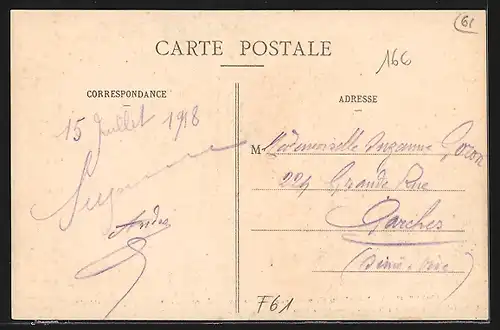 61
CARTE POSTALE
166
CORRESPONDANCE
ADRESSE
15 Juillet 1918
Suzanne
André
Mademoiselle Suzanne
229 Grande Rue
Garches
(Seine & Oise)
F61